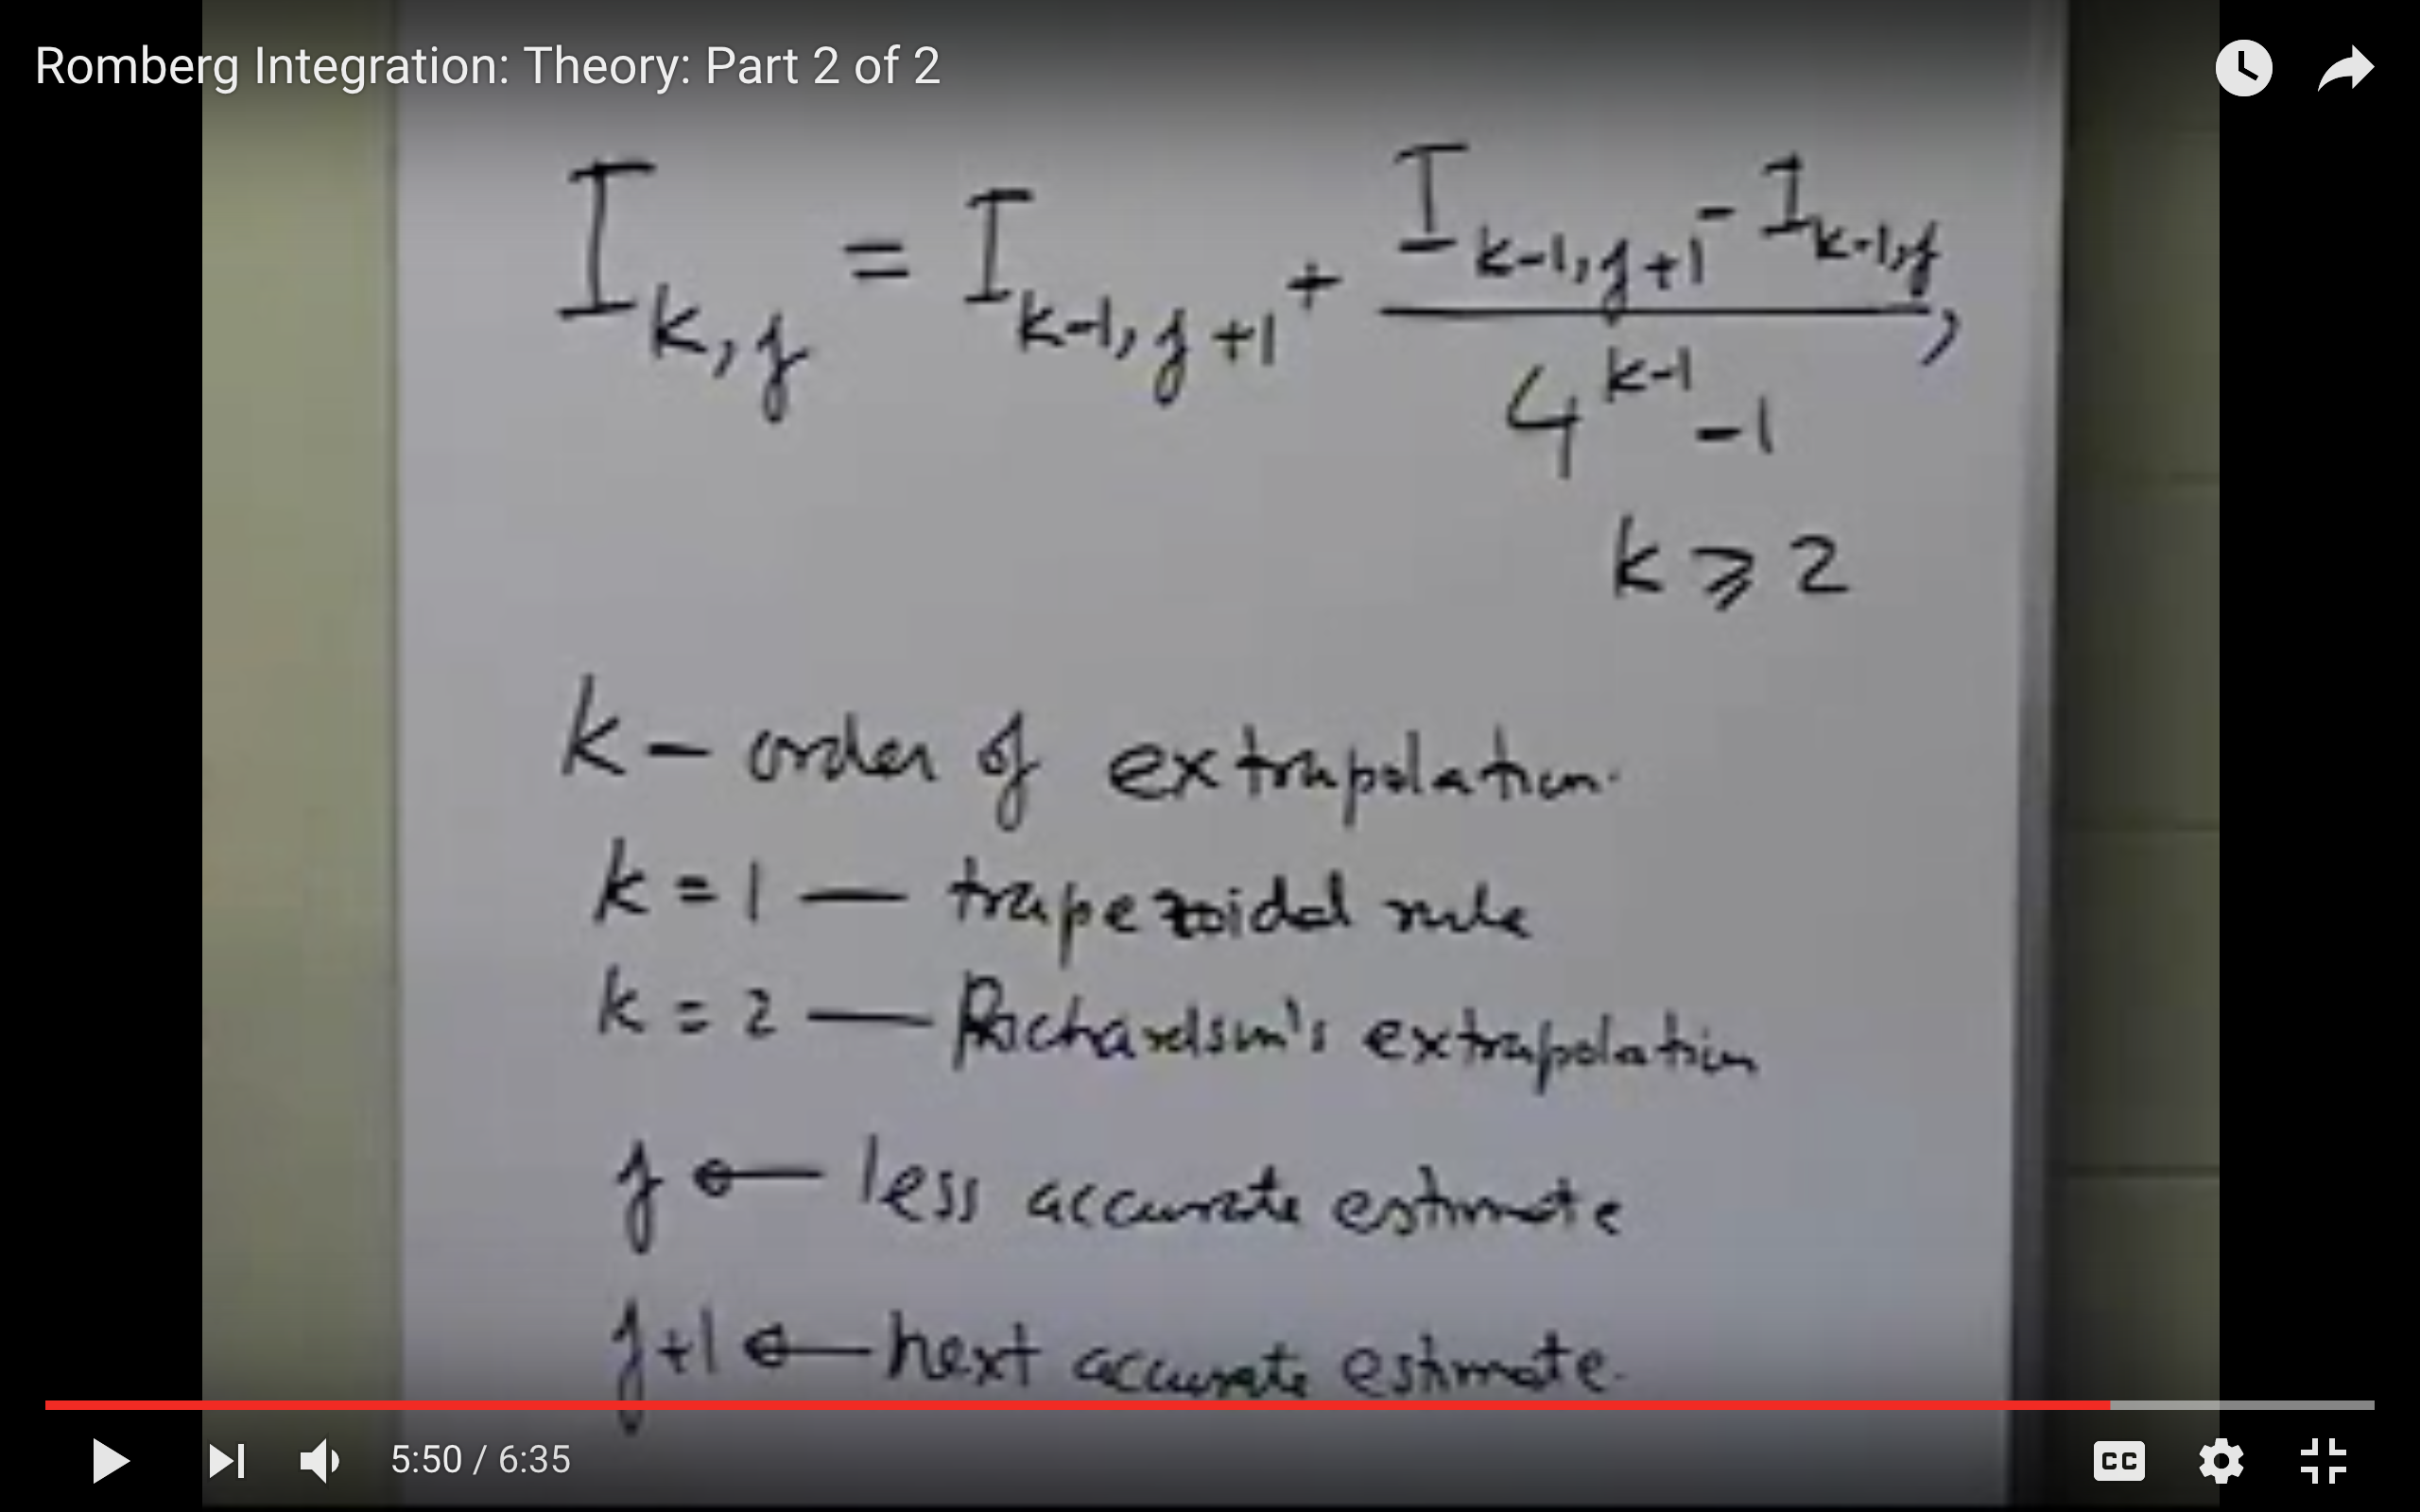 Romberg Integration: Theory: Part 2 of 2
I_{k,j} = I_{k-1,j+1} + \frac{I_{k-1,j+1} - I_{k-1,j}}{4^{k-1} - 1},
k ⩾ 2
k – order of extrapolation.
k = 1 — trapezoidal rule
k = 2 — Richardson's extrapolation
j ← less accurate estimate
j+1 ← next accurate estimate.
5:50 / 6:35
CC